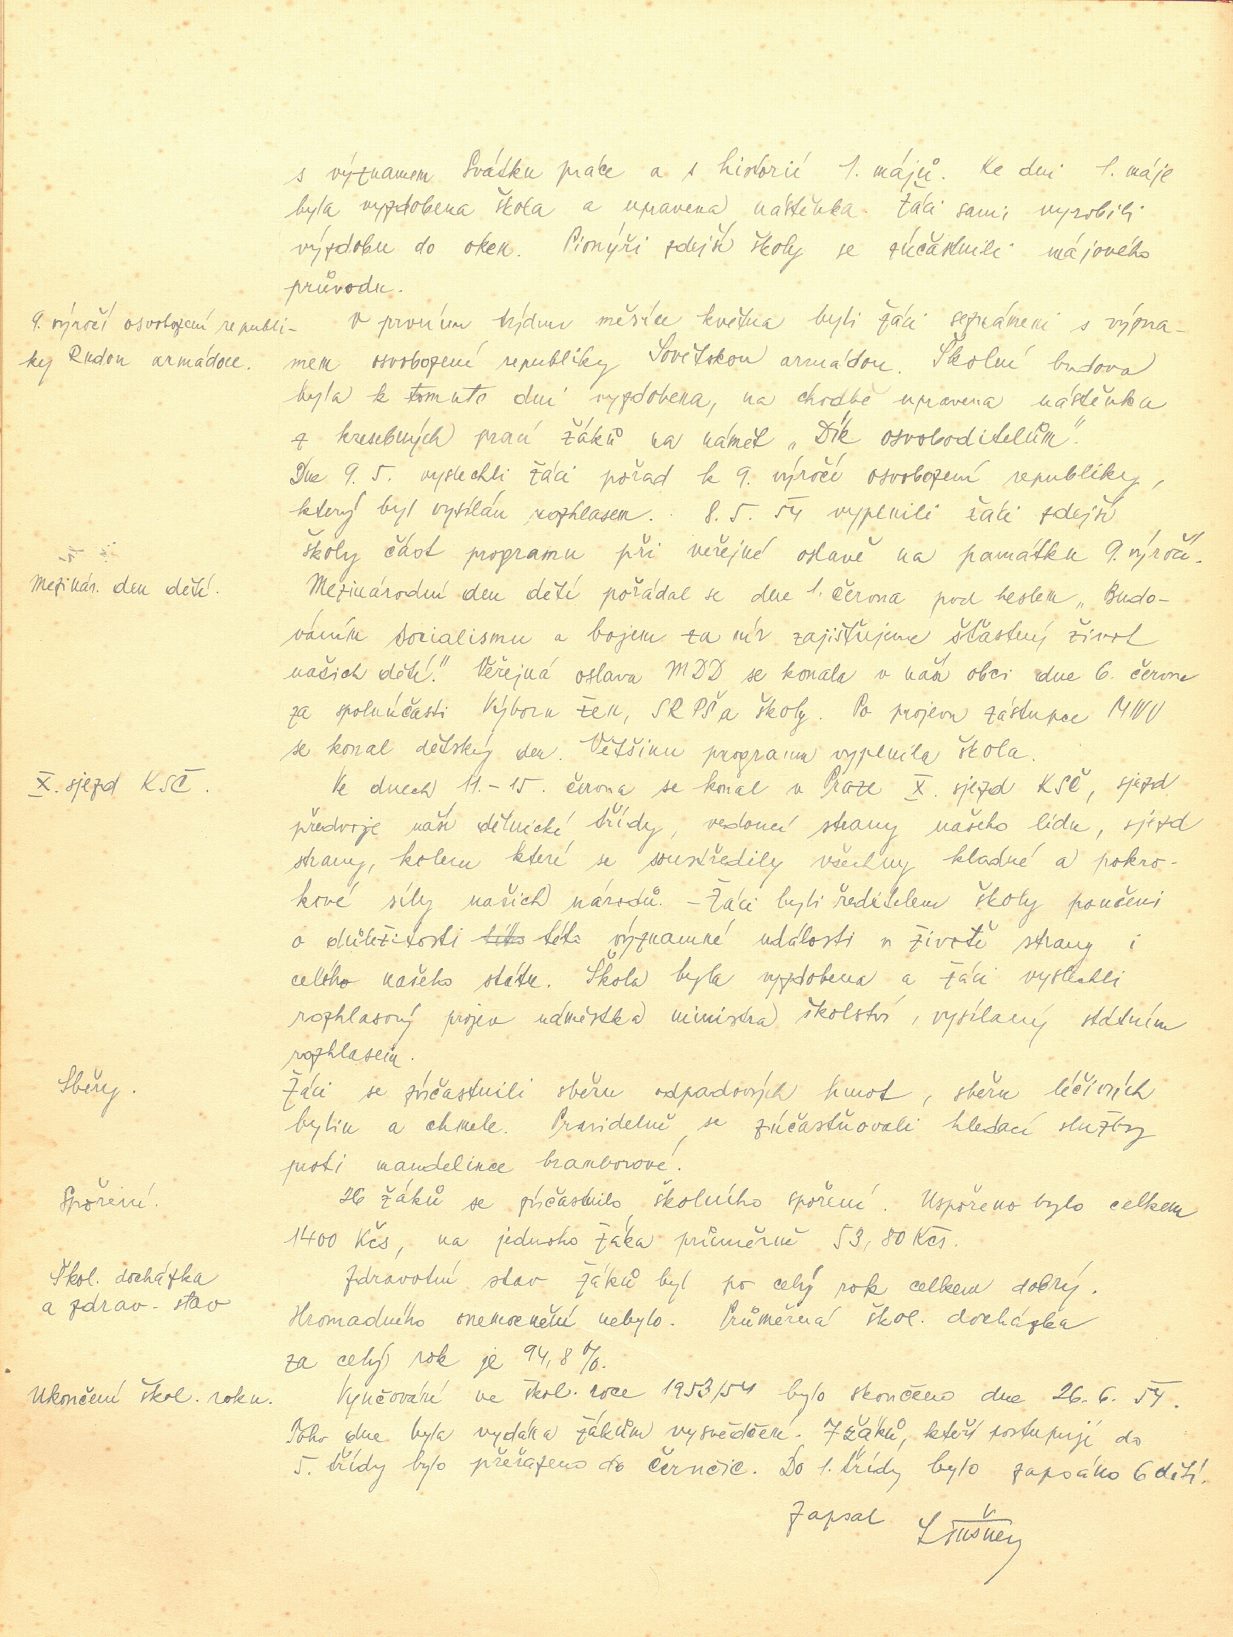 s významem Svátku práce a s historií 1. májů. Ke dni 1. máje
byla vyzdobena škola a upravena nástěnka. Žáci sami vyrobili
výzdobu do oken. Pionýři zdejší školy se zúčastnili májového
průvodu.
9. výročí osvobození republi-
ky Rudou armádou.
V prvním týdnu měsíce května byli žáci seznámeni s význa-
mem osvobození republiky Sovětskou armádou. Školní budova
byla k tomuto dni vyzdobena, na chodbě upravena nástěnka
z kresebných prací žáků na námět „Dík osvoboditelům".
Dne 9. 5. vyslechli žáci pořad k 9. výročí osvobození republiky,
který byl vysílán rozhlasem. 8. 5. 54 vyplnili žáci zdejší
školy část programu při veřejné oslavě na památku 9. výročí.
Mezinár. den dětí.
Mezinárodní den dětí pořádal se dne 1. června pod heslem „Budo-
váním socialismu a bojem za mír zajišťujeme šťastný život
našich dětí." Veřejná oslava MDD se konala v naší obci dne 6. června
za spoluúčasti Výboru žen, SRPŠ a školy. Po projevu zástupce MNV
se konal dětský den. Většinu programu vyplnila škola.
X. sjezd KSČ.
Ve dnech 11.-15. června se konal v Praze X. sjezd KSČ, sjezd
předvoje naší dělnické třídy, vedoucí strany našeho lidu, sjezd
strany, kolem které se soustředily všechny kladné a pokro-
kové síly našich národů. - Žáci byli ředitelem školy poučeni
o důležitosti této této významné události v životě strany i
celého našeho státu. Škola byla vyzdobena a žáci vyslechli
rozhlasový projev náměstka ministra školství, vysílaný státním
rozhlasem.
Sběry.
Žáci se zúčastnili sběru odpadových hmot, sběru léčivých
bylin a chmele. Pravidelně se zúčastňovali hledací služby
proti mandelince bramborové.
Spoření.
26 žáků se zúčastnilo školního spoření. Uspořeno bylo celkem
1400 Kčs, na jednoho žáka průměrně 53,80 Kčs.
Škol. docházka
a zdrav. stav
Zdravotní stav žáků byl po celý rok celkem dobrý.
Hromadného onemocnění nebylo. Průměrná škol. docházka
za celý rok je 94,8 %.
Ukončení škol. roku.
Vyučování ve škol. roce 1953/54 bylo skončeno dne 26. 6. 54.
Toho dne byla vydána žákům vysvědčení. 7 žáků, kteří postupují do
5. třídy bylo přeřazeno do Černčic. Do 1. třídy bylo zapsáno 6 dětí.
Zapsal